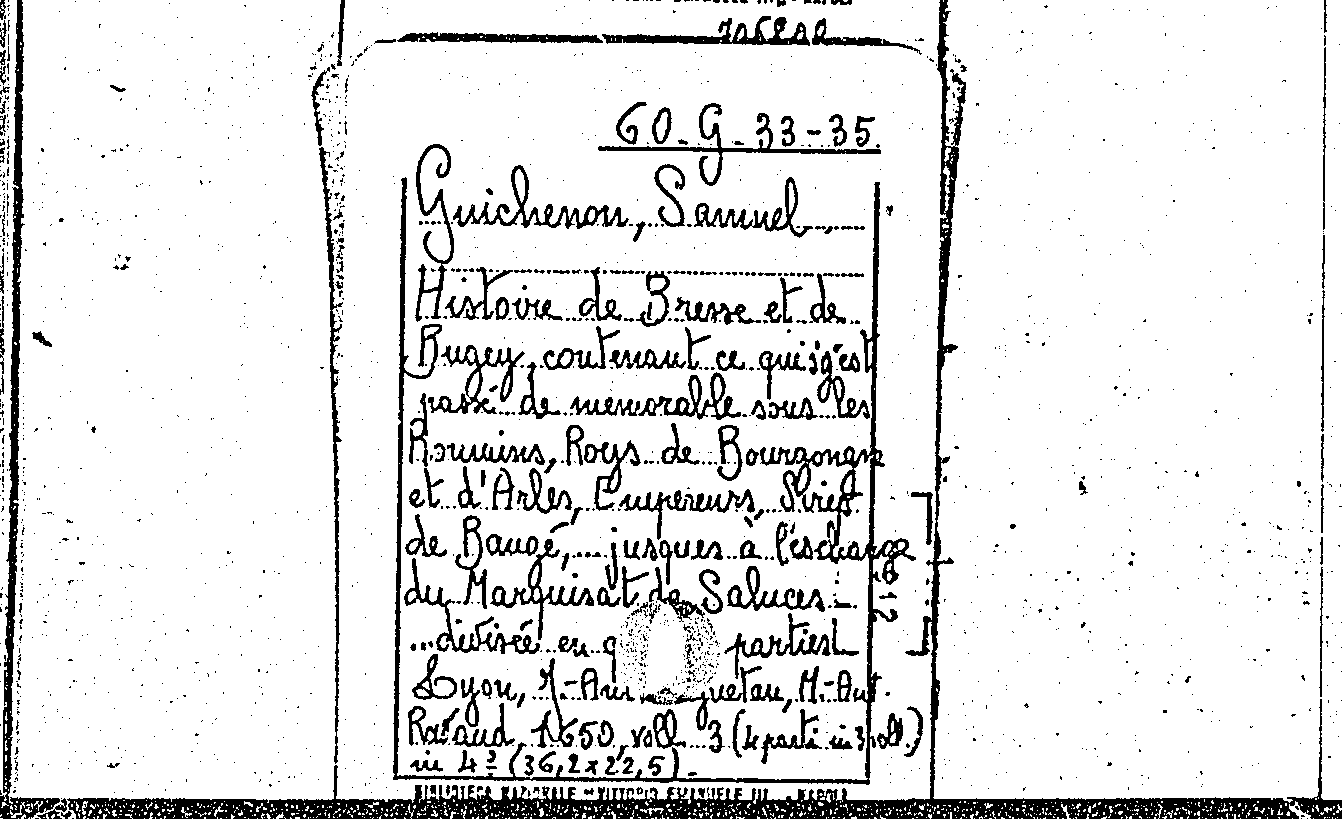 60.G.33-35
Guichenon, Samuel
Histoire de Bresse et de
Bugey, contenant ce qui s'est
passé de memorable sous les
Romains, Roys de Bourgongne
et d'Arles, Empereurs, Sires
de Baugé,... jusques à l'eschange
du Marquisat de Saluces
...divisée en parties
Lyon, M.-Ant.
1650, voll. 3 (4 parti in 3 voll.)
in 4º (36,2x22,5).
BIBLIOTECA NAZIONALE - VITTORIO EMANUELE III - NAPOLI